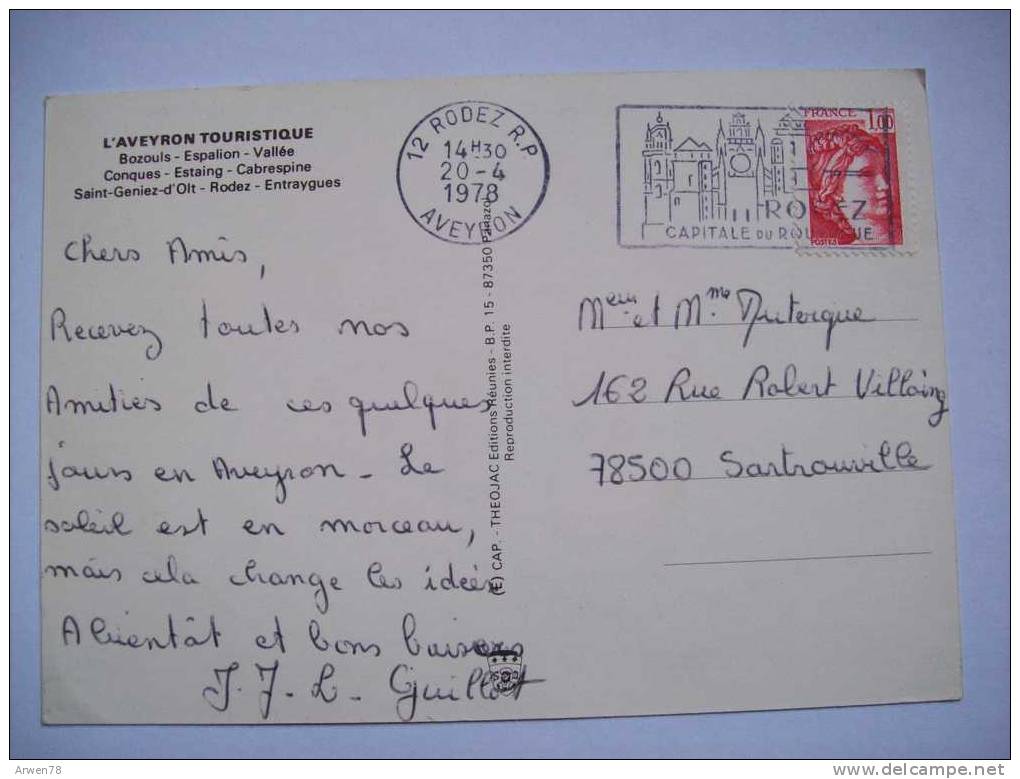 L'AVEYRON TOURISTIQUE
Bozouls - Espalion - Vallée
Conques - Estaing - Cabrespine
Saint-Geniez-d'Olt - Rodez - Entraygues
12 RODEZ R.P.
14H30
20-4
1978
AVEYRON
FRANCE
1.00
POSTES
RODEZ
CAPITALE DU ROUERGUE
Chers Amis,
Recevez toutes nos
Amitiés de ces quelques
jours en Aveyron - Le
soleil est en morceau,
mais cela change les idées
A bientôt et bons baisers
J. J. L. Guillot
(E) CAP. - THEOJAC Editions Réunies - B.P. 15 - 87350 Panazol
Reproduction interdite
Meur et Mme Duterque
162 Rue Robert Villaing
78500 Sartrouville
Arwen78
www.delcampe.net